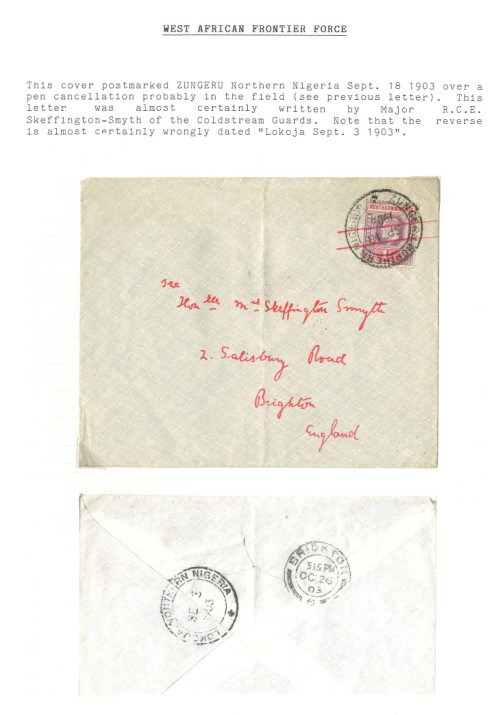 WEST AFRICAN FRONTIER FORCE
This cover postmarked ZUNGERU Northern Nigeria Sept. 18 1903 over a
pen cancellation probably in the field (see previous letter). This
letter was almost certainly written by Major R.C.E.
Skeffington-Smyth of the Coldstream Guards. Note that the reverse
is almost certainly wrongly dated "Lokoja Sept. 3 1903".
ZUNGERU NORTHERN NIGERIA
The
Honble Mrs Skeffington Smyth
2. Salisbury Road
Brighton
England
LOKOJA NORTHERN NIGERIA
SE 3
1903
BRIGHTON
5 15 PM
OC 26
03